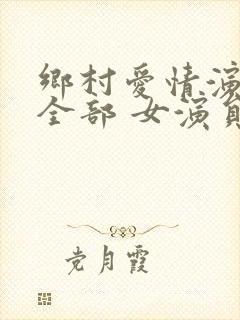 鄉村愛情演
全部 女演員
党月霞